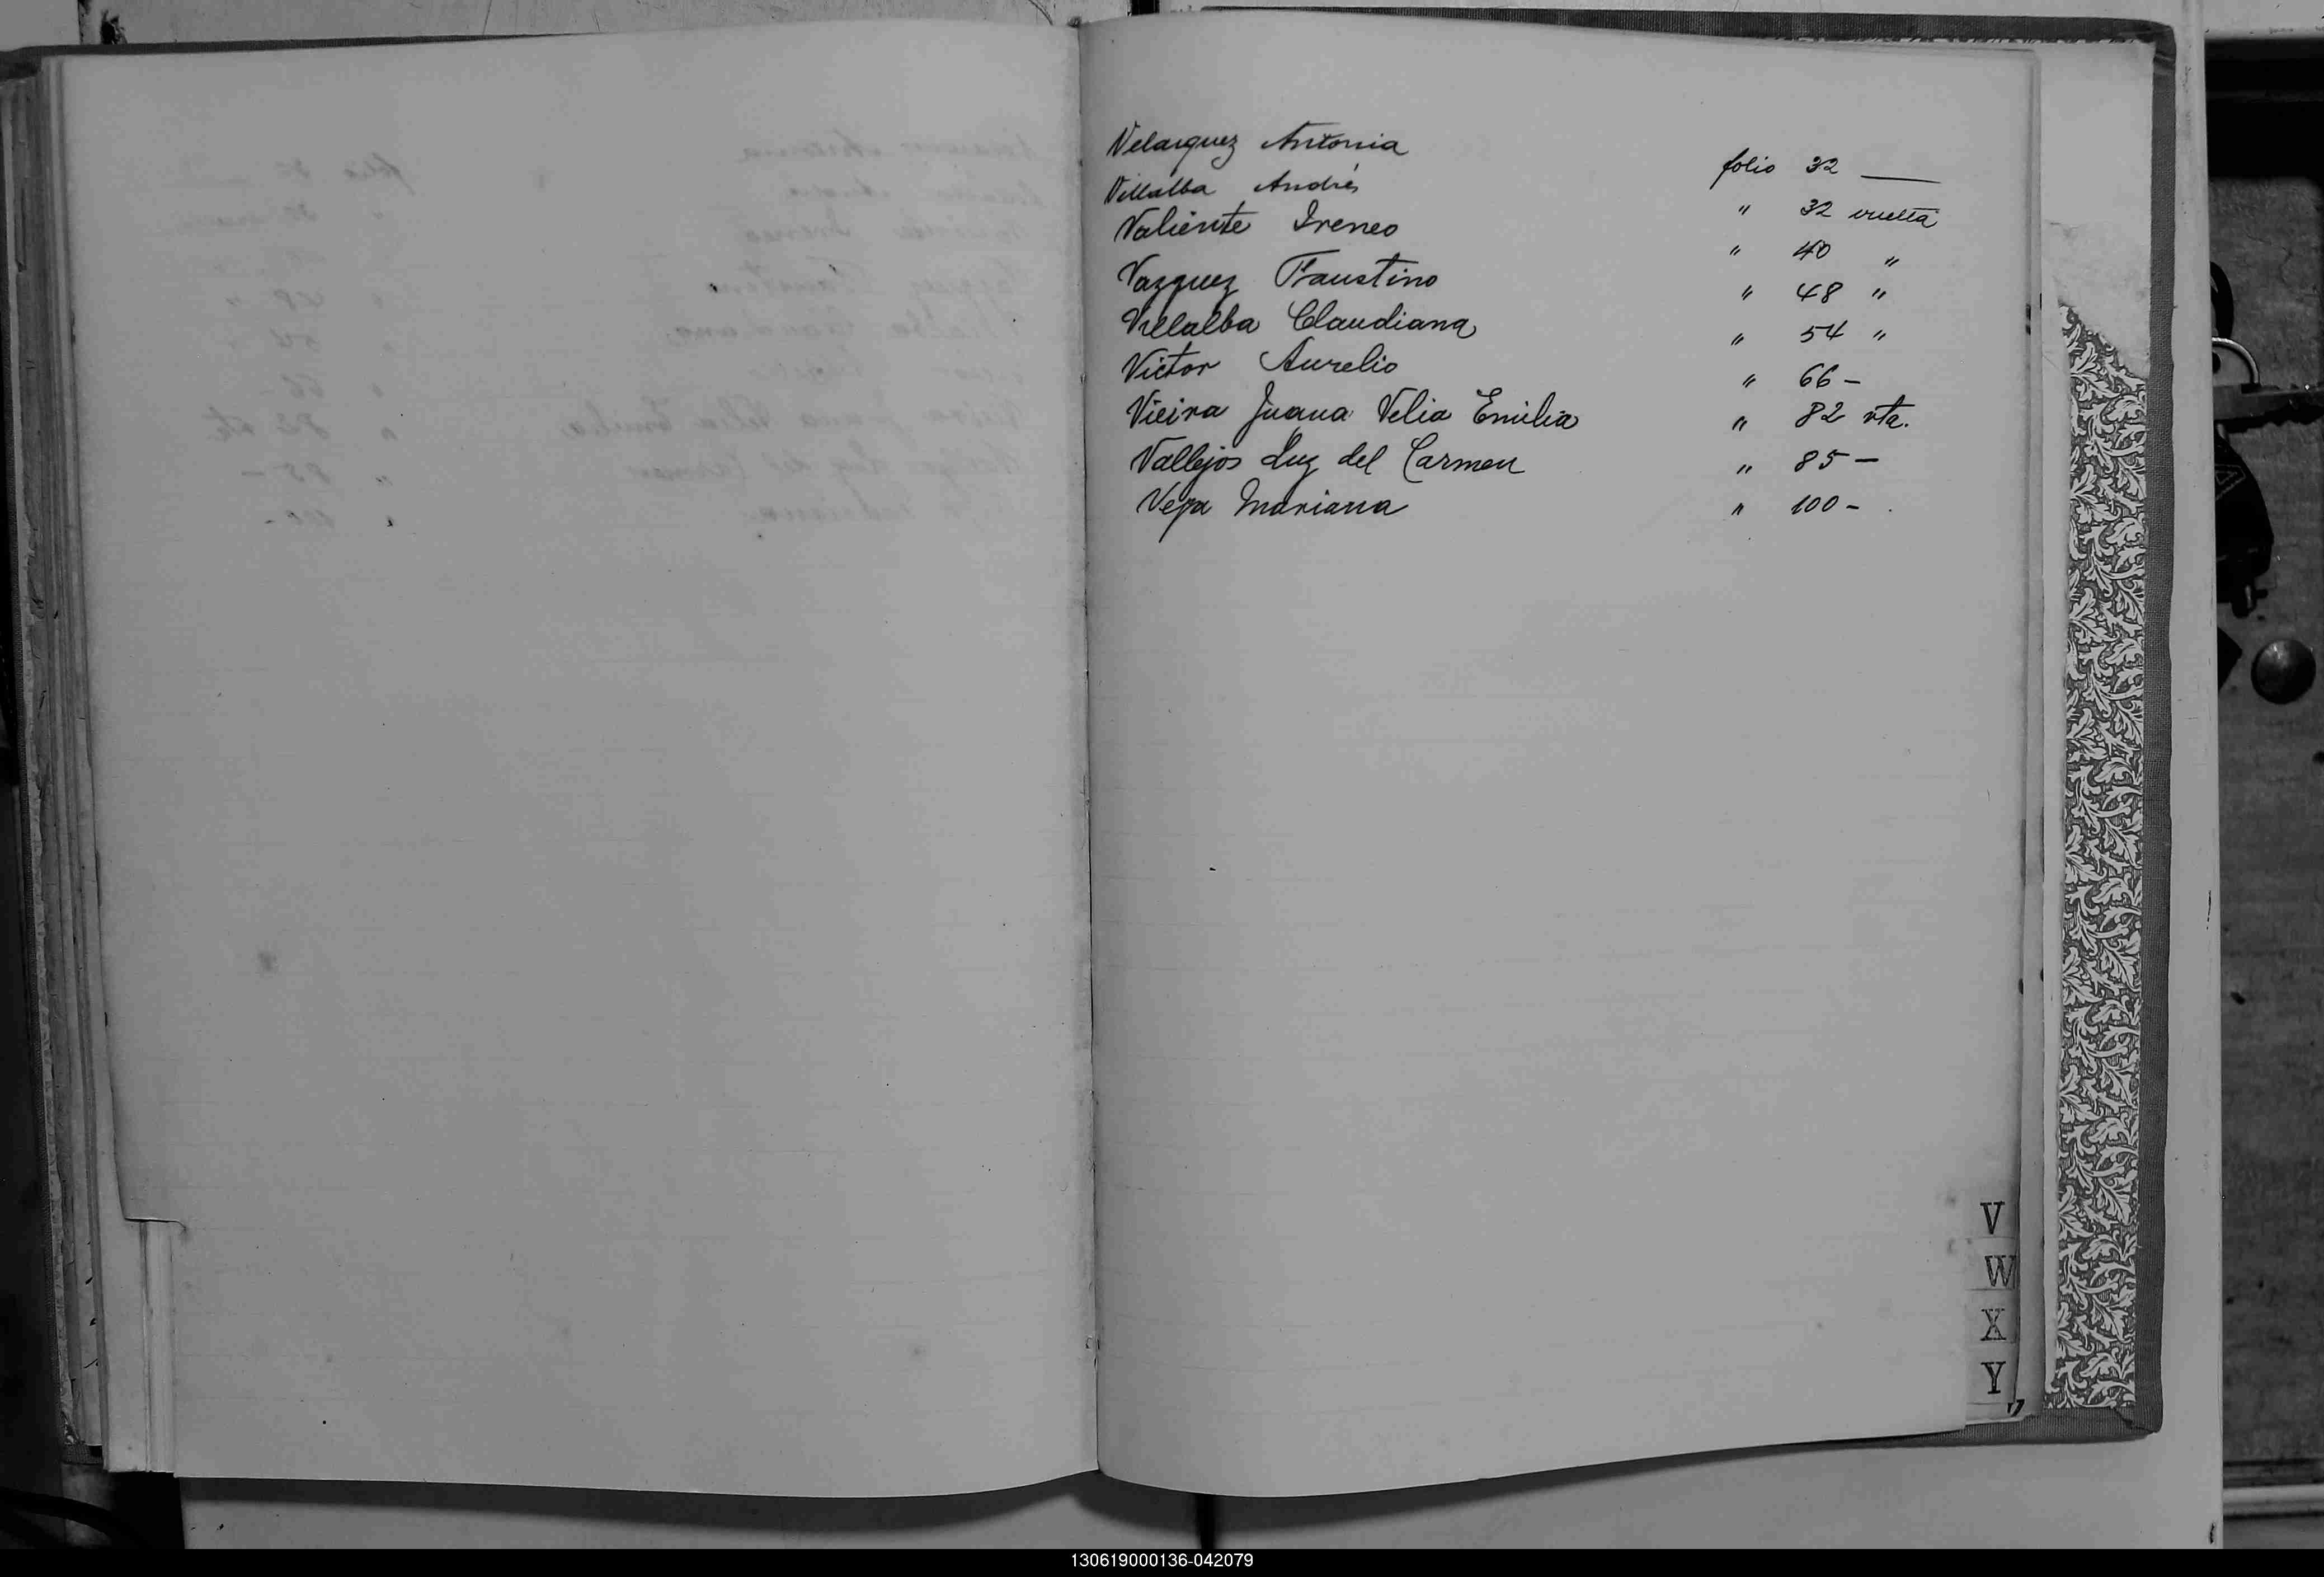 Velazquez Antonia folio 32 —
Villalba Andrés " 32 vuelta
Valiente Ireneo " 40 "
Vazquez Faustino " 48 "
Villalba Claudiana " 54 "
Victor Aurelio " 66 -
Vieira Juana Velia Emilia " 82 vta.
Vallejos Luz del Carmen " 85 -
Vega Mariana " 100 -
V
W
X
Y
130619000136-042079